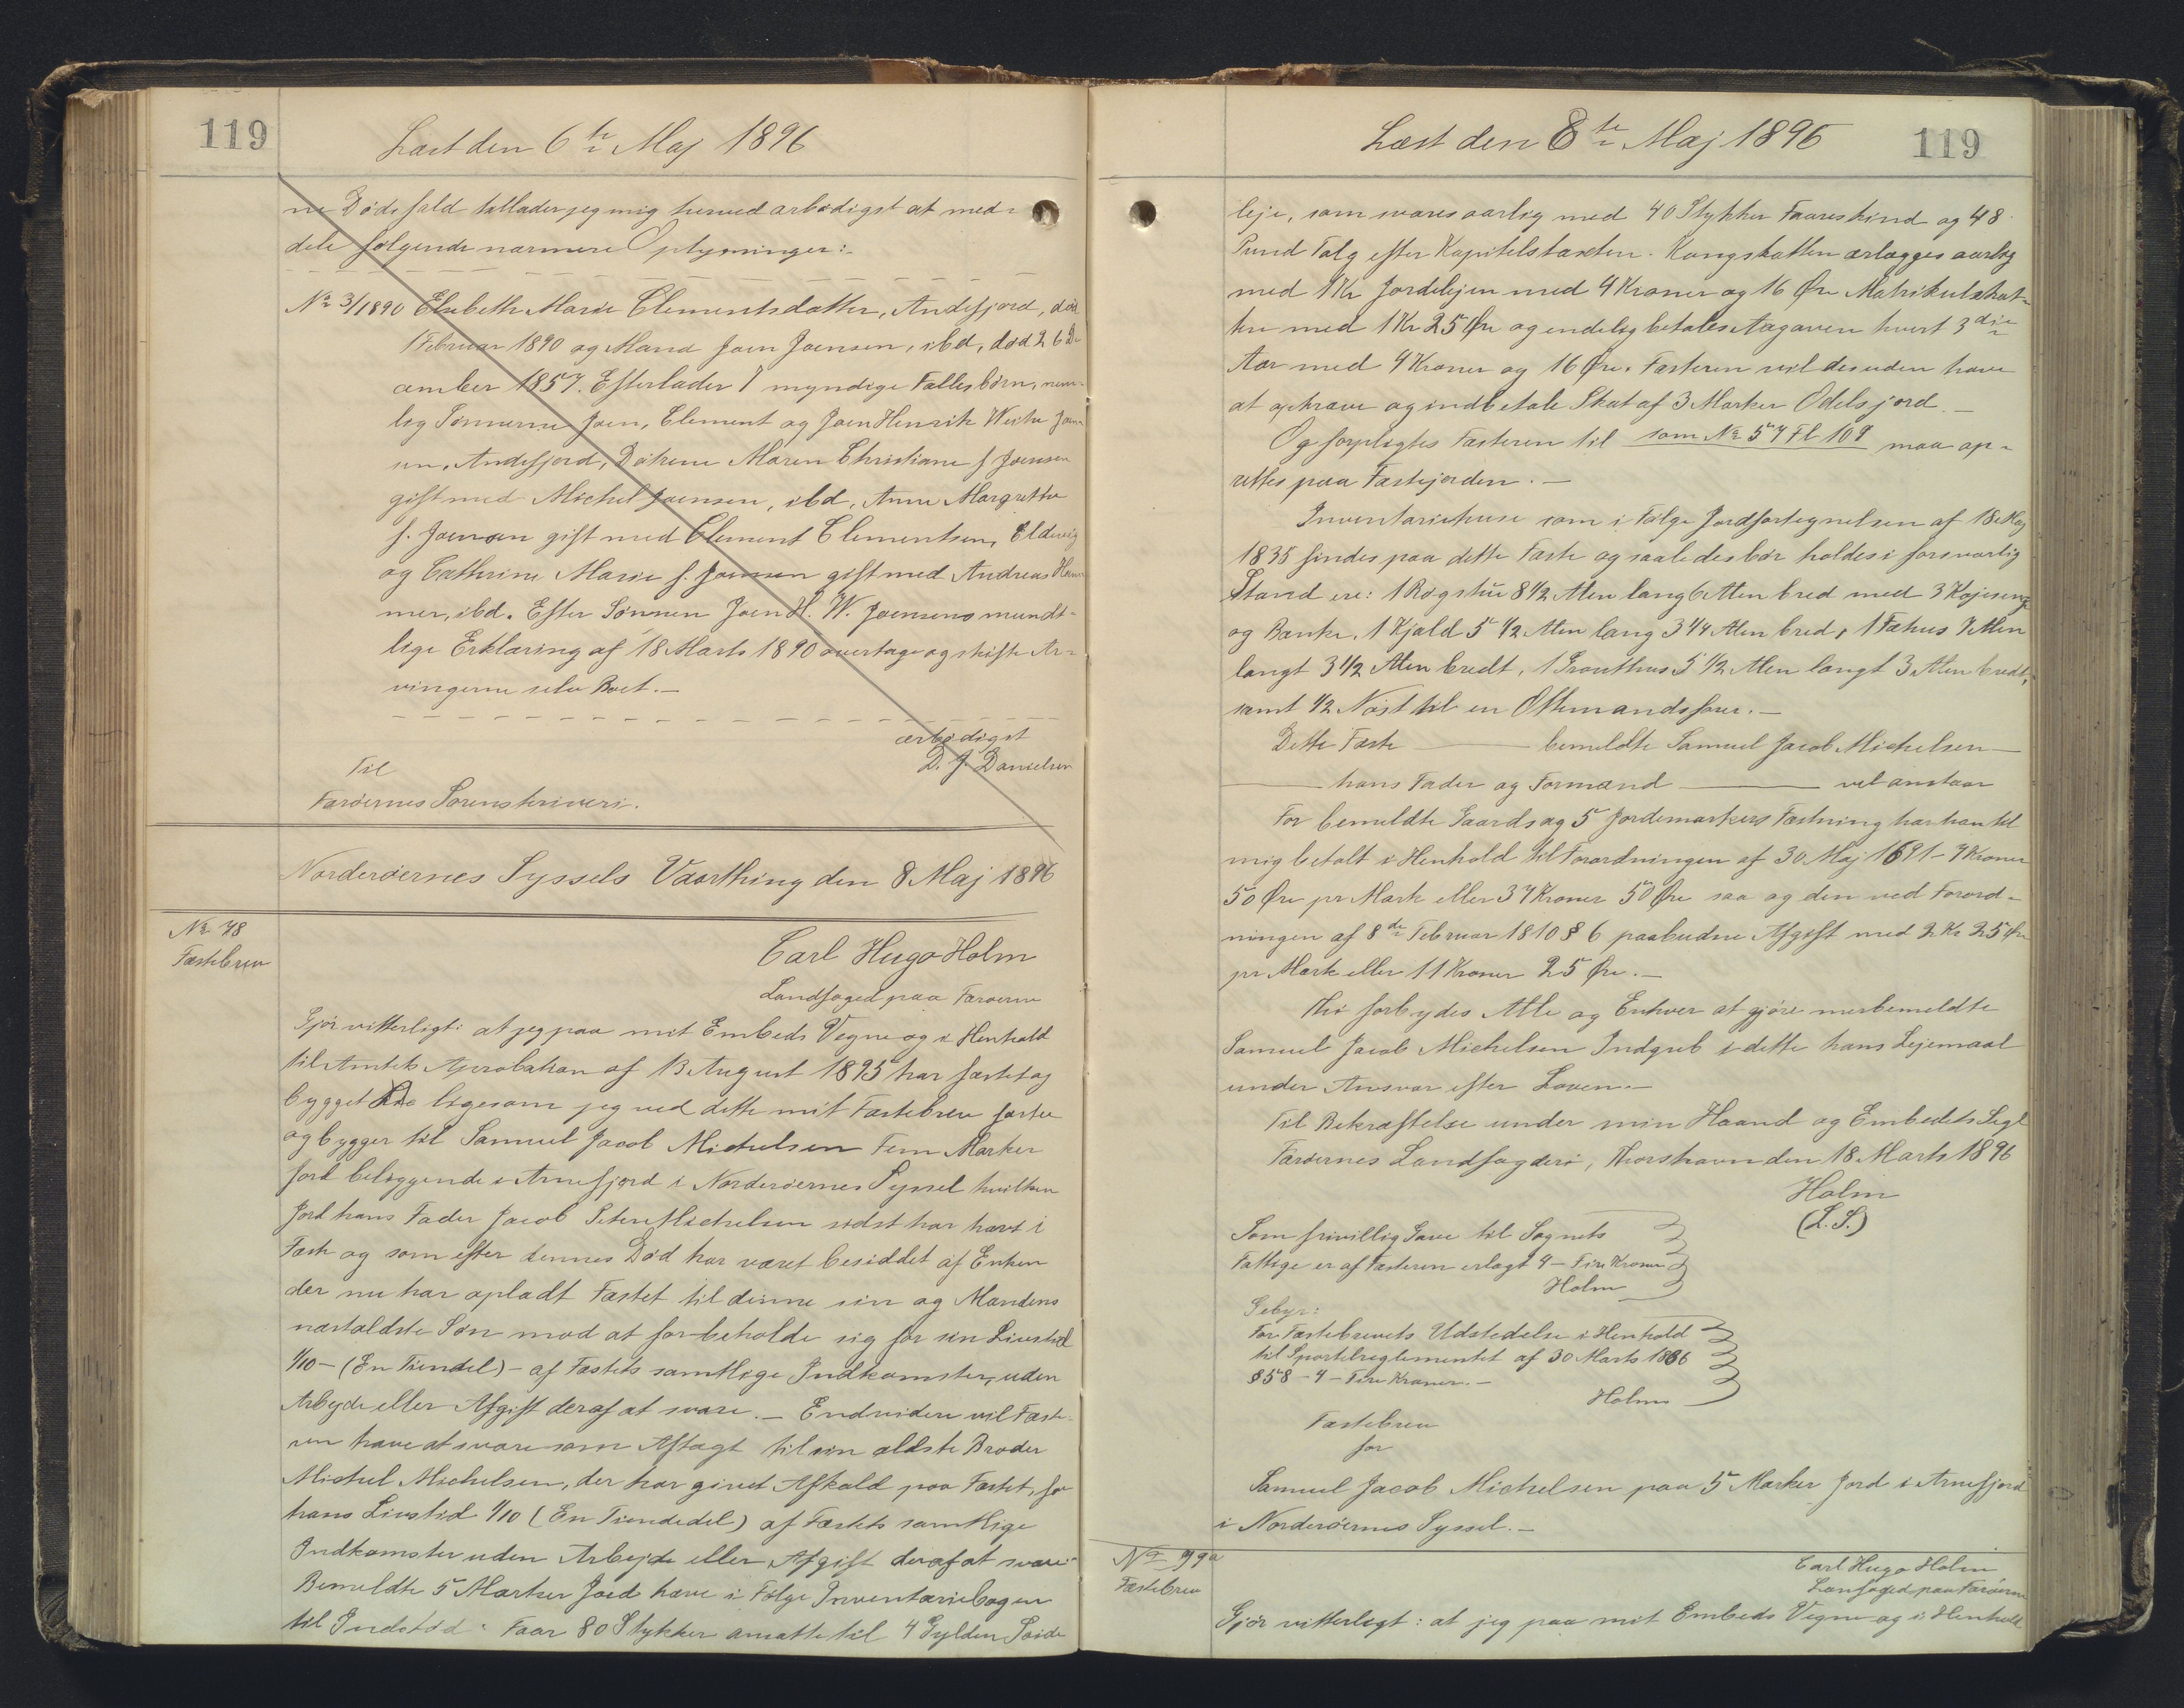 119
Læst den 6te Maj 1896
ne Dødsfald tillader jeg mig herved ærbødigst at med-
dele følgende nærmere Oplysninger:-
No 3/1890 Elsebeth Marie Clementsdatter, Andefjord, død
1 Februar 1890 og Mand Joen Joensen, ibd, død 26 De
cember 1857. Efterlader 7 myndige Fællesbørn, nem-
lig Sønnerne Joen, Clement og Joen Henrik Weihe Joen
sen, Andefjord, Døtrene Maren Christiane f Joensen
gift med Michel Joensen, ibd, Anne Margrethe
f. Joensen gift med Clement Clementsen, Eldevig
og Cathrine Marie f. Joensen gift med Andreas Ham
mer, ibd. Efter Sønnen Joen H. W. Joensens mundt-
lige Erklæring af 18 Marts 1890 overtage og skifte Ar-
vingerne selv Boet.-
ærbødigst
D. J. Danielsen
Til
Færøernes Sorenskriveri.
Norderøernes Syssels Vaarthing den 8 Maj 1896
No 78
Fæstebrev
Carl Hugo Holm
Landfoged paa Færøerne
Gjør vitterligt: at jeg paa mit Embeds Vegne og i Henhold
til Amtets Approbation af 13 August 1895 har fæstet og
bygget ligesom jeg ved dette mit Fæstebrev fæster
og bygger til Samuel Jacob Michelsen Fem Marker
Jord beliggende i Arnefjord i Norderøernes Syssel hvilken
Jord hans Fader Jacob Peter Michelsen sidst har havt i
Fæste og som efter dennes Død har været besiddet af Enken
der nu har opladt Fæstet til denne sin og Mandens
næstældste Søn mod at forbeholde sig for sin Livstid
1/10 - (En Tiendel) - af Fæstets samtlige Indkomster, uden
Arbejde eller Afgift deraf at svare. - Endvidere vil Fæste-
ren have at svare som Aftægt til sin ældste Broder
Michel Michelsen, der har givet Afkald paa Fæstet, for
hans Livstid 1/10 (En Tiendedel) af Fæstets samtlige
Indkomster uden Arbejde eller Afgift deraf at svare
Bemeldte 5 Marker Jord have i Følge Inventariebogen
til Indstød: Faar 80 Stykker ansatte til 4 Gylden
Læst den 8te Maj 1896
119
leje, som svares aarlig med 40 Stykker Faareskind og 48
Pund Talg efter Kapitelstaxten. Kongskatten erlægges aarlig
med 1 Kr Jordelejen med 4 Kroner og 16 Øre Matrikulskat-
ten med 1 Kr 25 Øre og endelig betales Tagaven hvert 3die
Aar med 4 Kroner og 16 Øre. Fæsteren vil desuden have
at opkræve og indbetale Skat af 3 Marker Odelsjord.-
Og forpligtes Fæsteren til som No 57 Fl 109 maa op-
rettes paa Fæstejorden.-
Inventariehuse som i Følge Jordfortegnelsen af 18 Maj
1835 findes paa dette Fæste og saaledes bør holdes i forsvarlig
Stand ere: 1 Røgstue 8 1/2 Alen lang 6 Alen bred med 3 Køjesenge
og Bænke, 1 Hjald 5 1/2 Alen lang 3 1/4 Alen bred, 1 Fæhus 7 Alen
langt 3 1/2 Alen bredt, 1 Grouthus 5 1/2 Alen langt 3 Alen bredt,
samt 1/2 Nøst til en Ottemandsfarer.-
Dette Fæste - bemeldte Samuel Jacob Michelsen -
- hans Fader og Formand - vel anstaar
For bemeldte Gaards og 5 Jordemarkers Fæstning har han til
mig betalt i Henhold til Forordningen af 30 Maj 1691 - 7 Kroner
50 Øre pr Mark eller 37 Kroner 50 Øre saa og den ved Forord-
ningen af 8de Februar 1810 § 6 paabudne Afgift med 2 Kr 25 Øre
pr Mark eller 11 Kroner 25 Øre.-
Thi forbydes Alle og Enhver at gjøre merbemeldte
Samuel Jacob Michelsen Indgreb i dette hans Lejemaal
under Ansvar efter Loven.-
Til Bekræftelse under min Haand og Embedets Segl
Færøernes Landfogderi, Thorshavn den 18 Marts 1896
Holm
(L. S.)
Som frivillig Gave til Sognets
Fattige er af Fæsteren erlagt 4 - Fire Kroner
Holm
Gebyr:
For Fæstebrevets Udstedelse i Henhold
til Sportelreglementet af 30 Marts 1836
§ 58 - 4 - Fire Kroner.-
Holm
Fæstebrev
for
Samuel Jacob Michelsen paa 5 Marker Jord i Arnefjord
i Norderøernes Syssel.-
No 79a
Fæstebrev
Carl Hugo Holm
Lanfoged paa Færøerne
Gjør vitterligt: at jeg paa mit Embeds Vegne og i Henhold